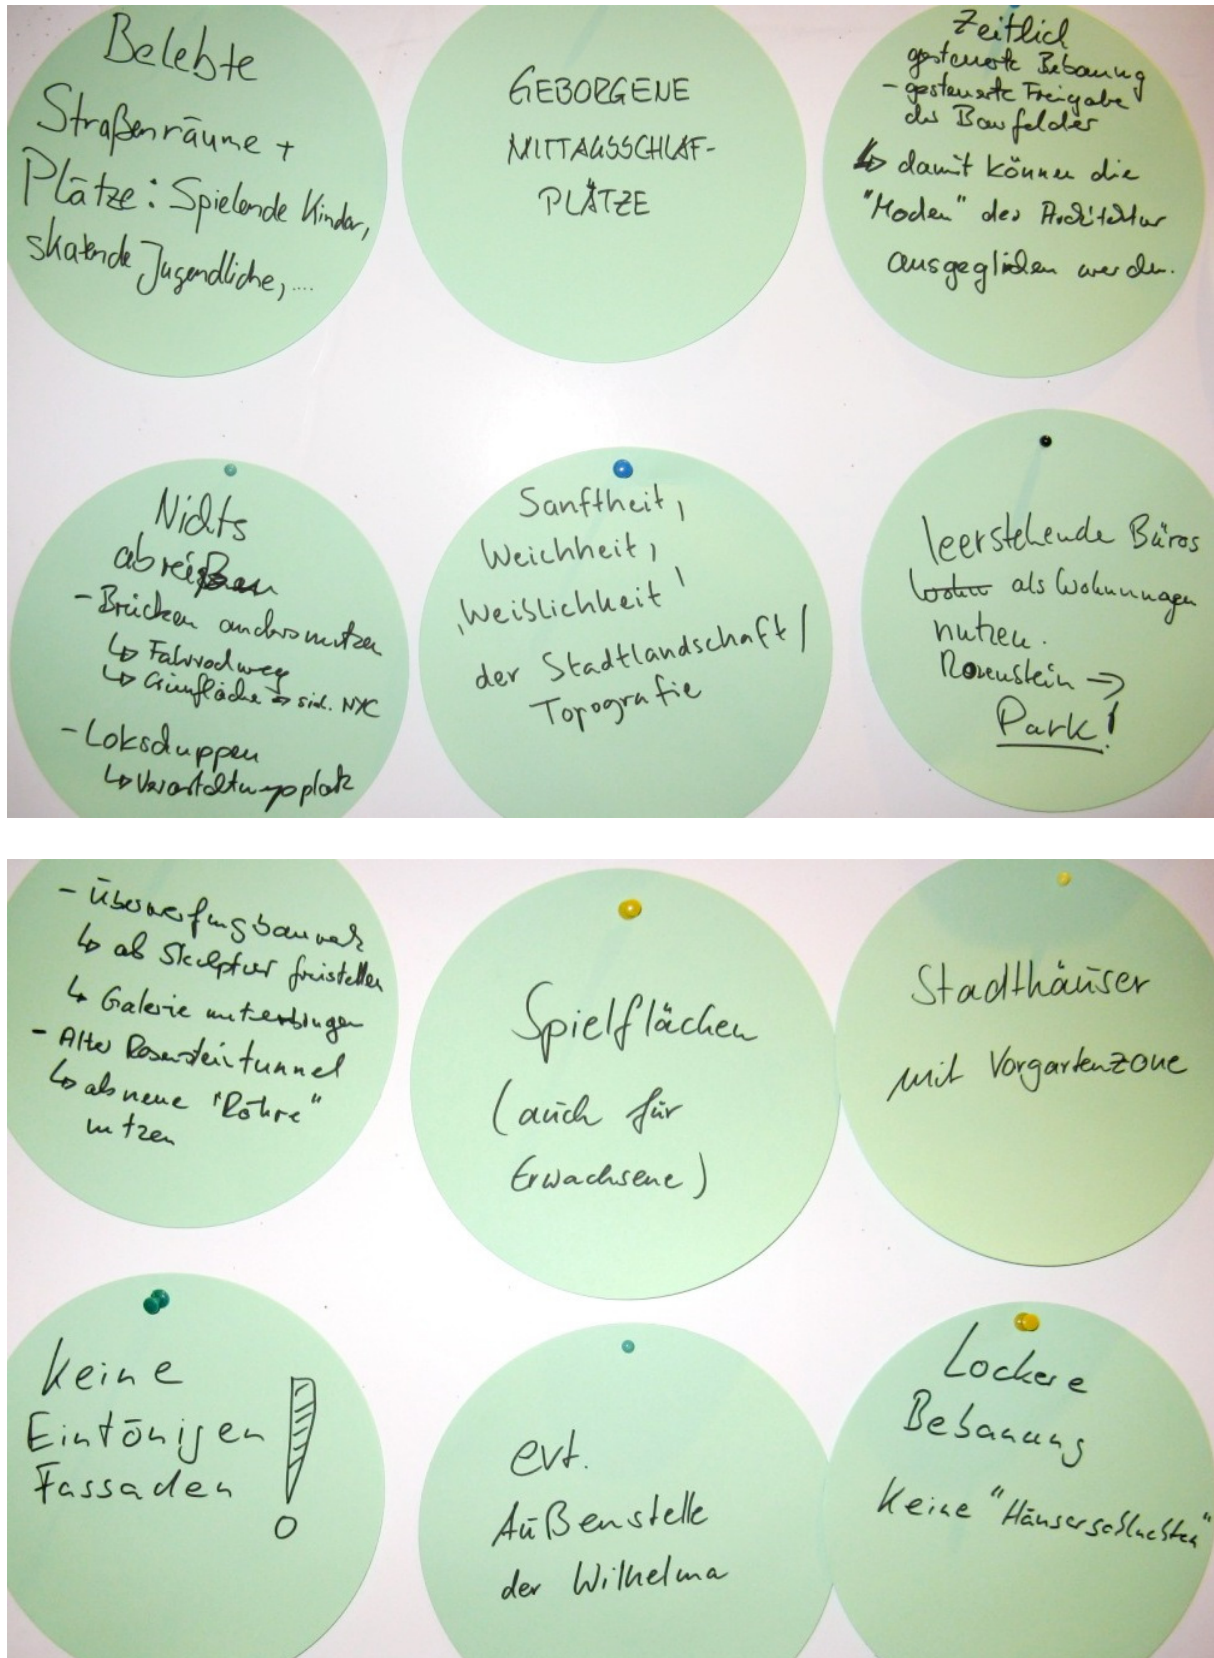 Belebte
Straßenräume +
Plätze: Spielende Kinder,
skatende Jugendliche, ....
GEBORGENE
MITTAGSSCHLAF-
PLÄTZE
Zeitlich
gesteuerte Bebauung
- gesteuerte Freigabe
der Baufelder
↳ damit können die
"Moden" der Architektur
ausgeglichen werden.
Nichts
abreißen
- Brücken anders nutzen
↳ Fahrradweg
↳ Grünfläche → sieh. NYC
- Lokschuppen
↳ Veranstaltungsplatz
Sanftheit,
Weichheit,
‚Weiblichkeit'
der Stadtlandschaft/
Topografie
leerstehende Büros
als Wohnungen
nutzen.
Rosenstein →
Park!
- Überwerfungsbauwerk
↳ als Skulptur freistellen
↳ Galerie unterbringen
- Alter Rosensteintunnel
↳ als neue "Röhre"
nutzen
Spielflächen
(auch für
Erwachsene)
Stadthäuser
mit Vorgartenzone
Keine
Eintönigen
Fassaden !
evt.
Außenstelle
der Wilhelma
Lockere
Bebauung
Keine "Häuserschluchten"